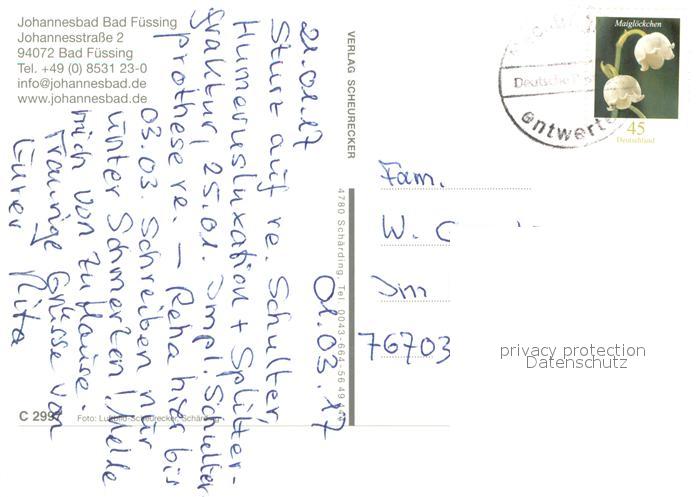 Johannesbad Bad Füssing
Johannesstraße 2
94072 Bad Füssing
Tel. +49 (0) 8531 23-0
info@johannesbad.de
www.johannesbad.de
01.03.17
21.01.17
Sturz auf re. Schulter,
Humerusluxation + Splitter-
fraktur, 25.01. Impl. Schulter
prothese re. – Reha hier bis
03.03. Schreiben nur
unter Schmerzen! Melde
mich von zu Hause.
Traurige Grüsse von
Eurer Rita
C 2997
Foto: Luftbild-Scheurecker, Schärding
VERLAG SCHEURECKER
4780 Schärding, Tel. 0043-664-56 49
Maiglöckchen
45
Deutschland
Deutsche
entwerte
Fam.
W.
Im
76703
privacy protection
Datenschutz